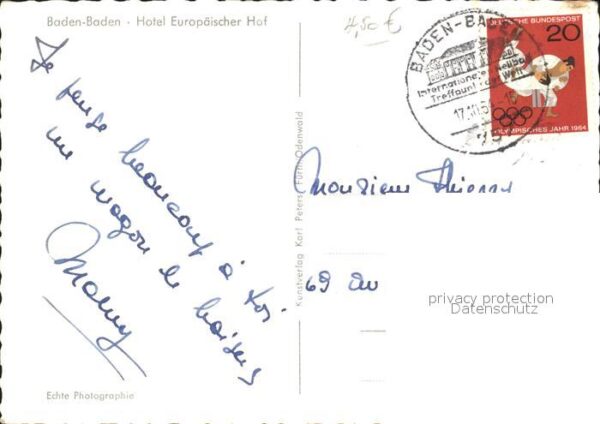 Baden-Baden · Hotel Europäischer Hof
4,50 €
Je pense beaucoup à toi
un wagon de baisers
Manny
Echte Photographie
Kunstverlag Karl Peters, Fürth Odenwald
BADEN-BADEN
Internationaler
Treffpunkt der Welt
17.10.
DEUTSCHE BUNDESPOST
20
OLYMPISCHES JAHR 1964
Monsieur
69
privacy protection
Datenschutz